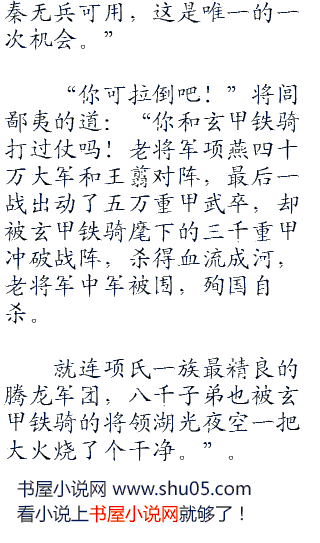 秦无兵可用，这是唯一的一
次机会。”
“你可拉倒吧！”将闾
鄙夷的道：“你和玄甲铁骑
打过仗吗！老将军项燕四十
万大军和王翦对阵，最后一
战出动了五万重甲武卒，却
被玄甲铁骑麾下的三千重甲
冲破战阵，杀得血流成河，
老将军中军被围，殉国自
杀。
就连项氏一族最精良的
腾龙军团，八千子弟也被玄
甲铁骑的将领湖光夜空一把
大火烧了个干净。”。
书屋小说网 www.shu05.com
看小说上书屋小说网就够了！